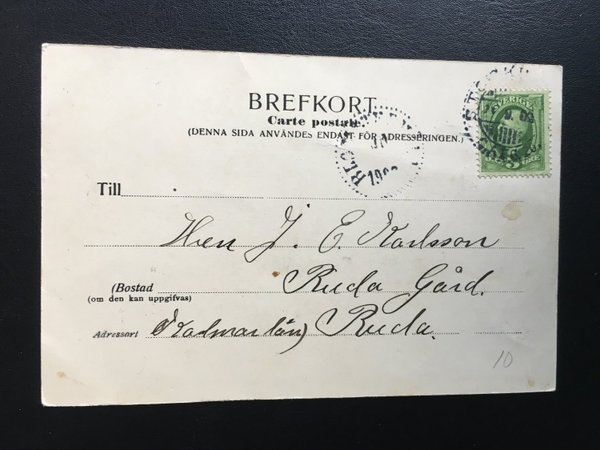 BREFKORT
Carte postale.
(DENNA SIDA ANVÄNDES ENDAST FÖR ADRESSERINGEN.)
SVERIGE
ÖRE
Till
Herr J. E. Karlsson
(Bostad
(om den kan uppgifvas)
Ruda Gård.
Adressort
(Kalmar län) Ruda.
10